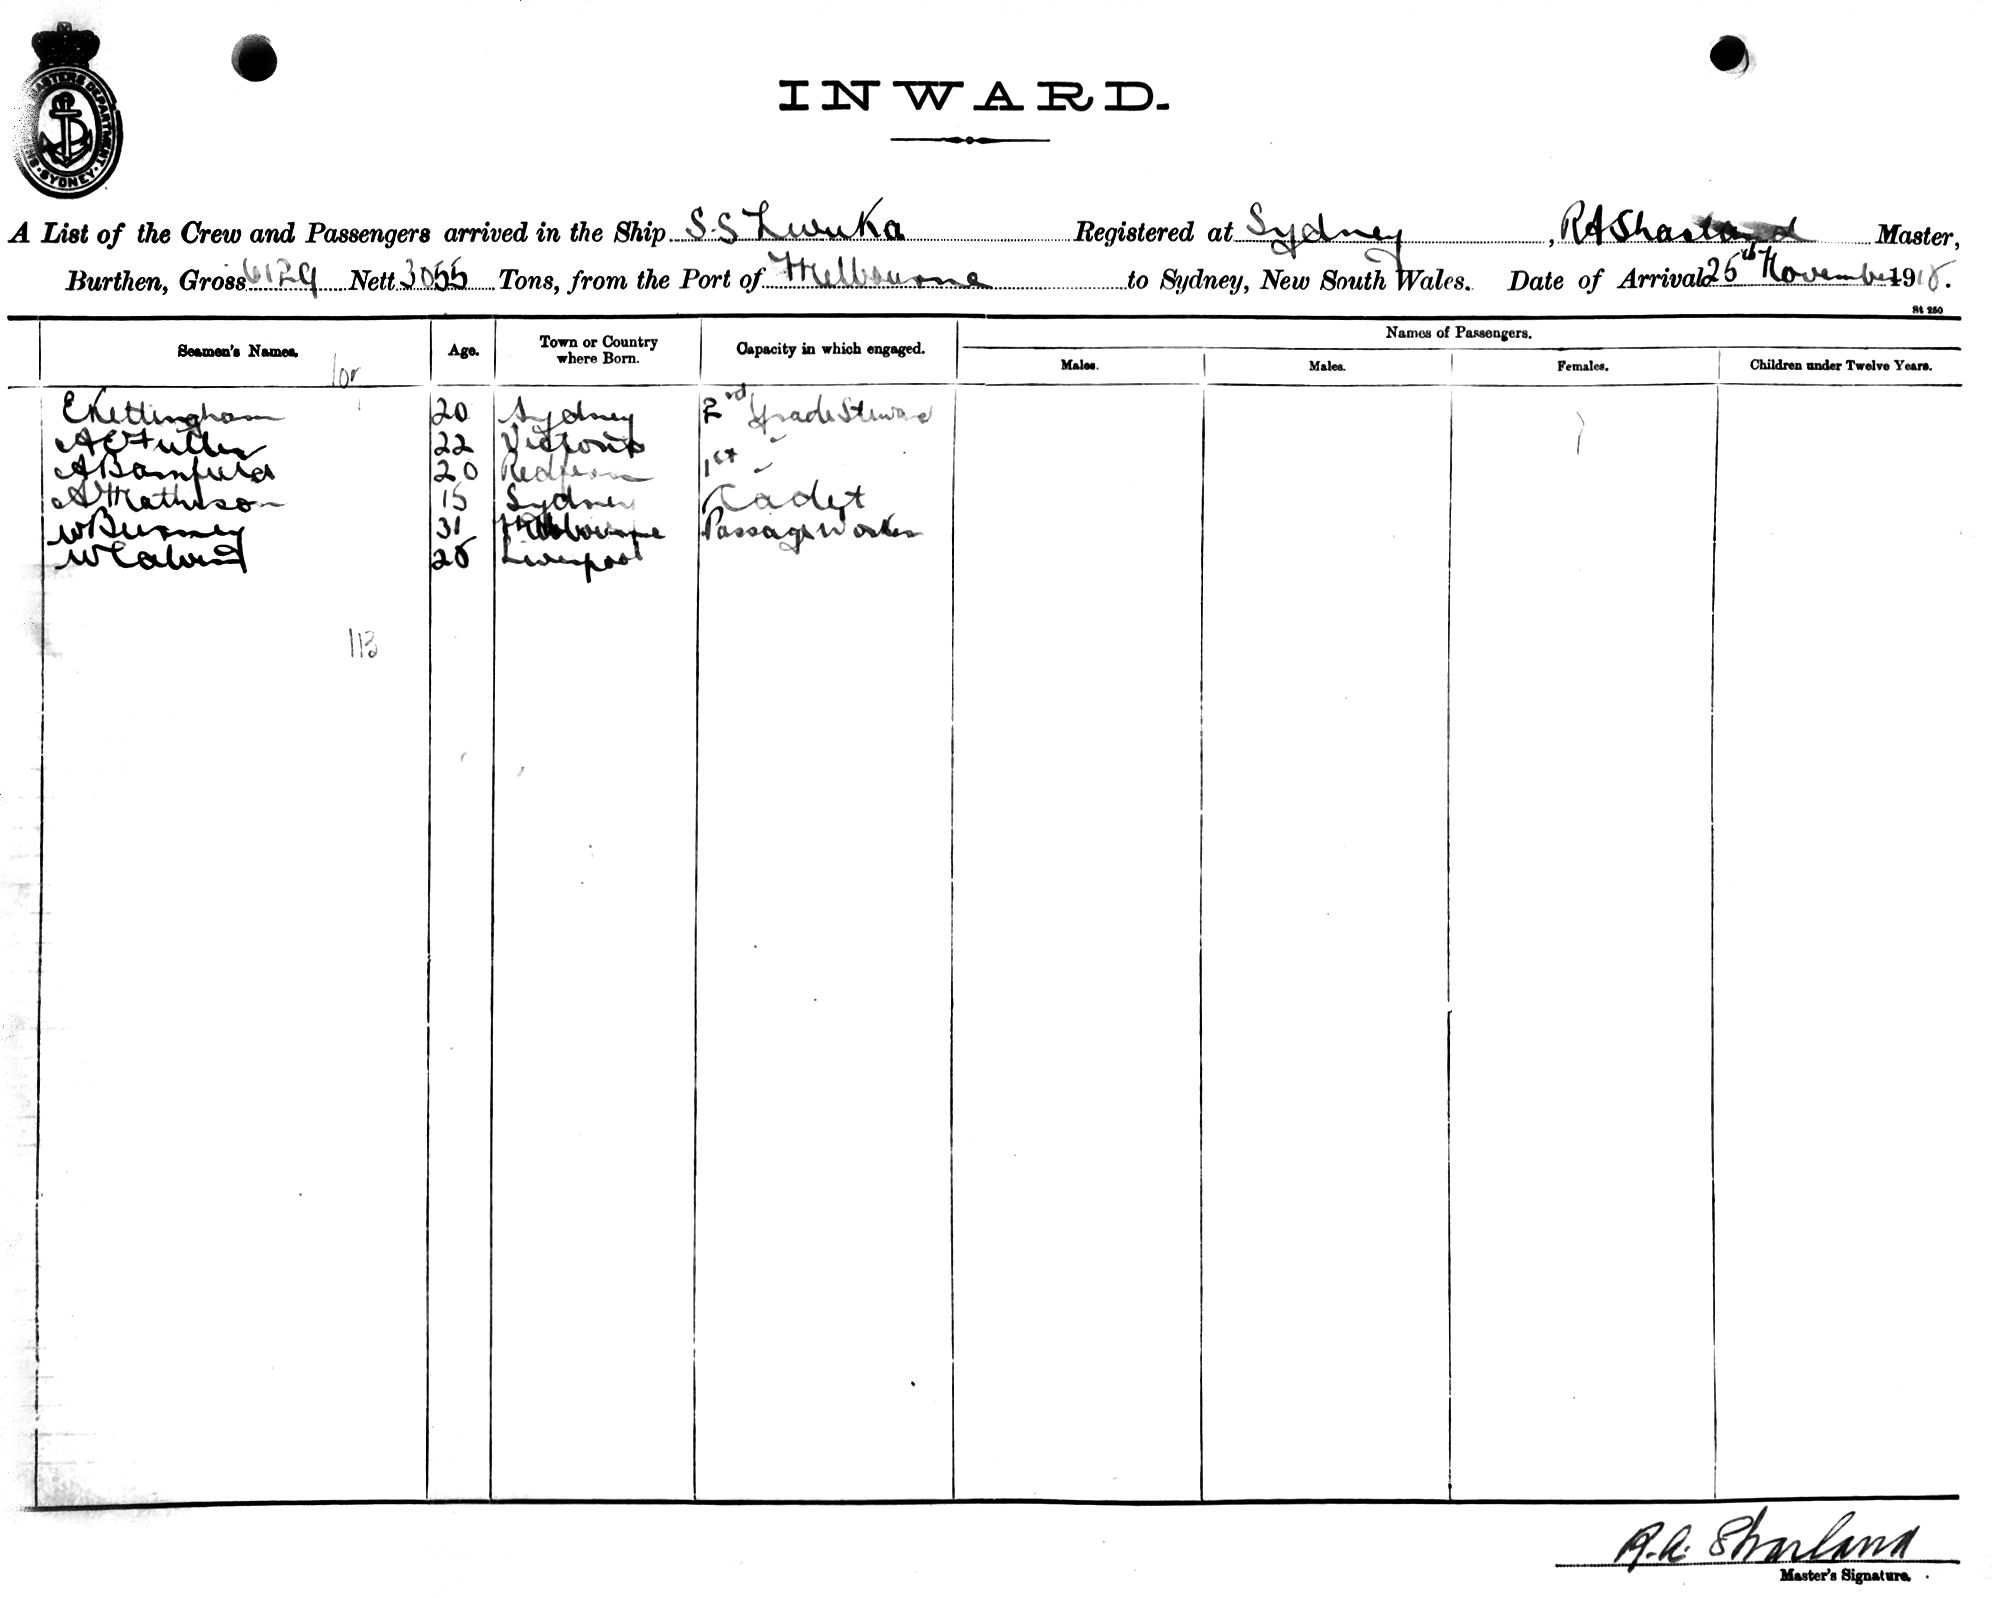 MASTERS DEPARTMENT SYDNEY
INWARD.
A List of the Crew and Passengers arrived in the Ship S.S Registered at Sydney, R A Sharland Master,
Burthen, Gross 6129 Nett 3055 Tons, from the Port of Melbourne to Sydney, New South Wales. Date of Arrival 25th November 191
St 250
Seamen's Names. Age. Town or Country where Born. Capacity in which engaged. Names of Passengers.
Males. Males. Females. Children under Twelve Years.
E Kettingham 20 Sydney 2rd Grade Steward
A E Fuller 22 Victoria "
A Bamfield 20 Redfern 1st "
A Mathison 15 Sydney Cadet
W Burney 31 Melbourne Passage Worker
W Calvert Liverpool
113
R.A. Sharland
Master's Signature.